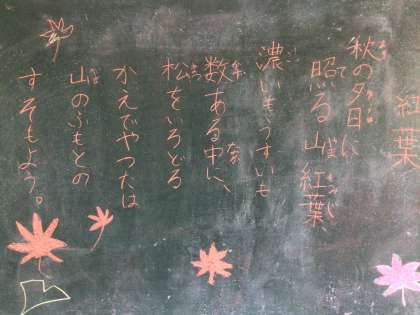 紅葉
秋の夕日に
照る山紅葉
濃いもうすいも
数ある中に、
松をいろどる
かえでやつたは
山のふもとの
すそもよう。